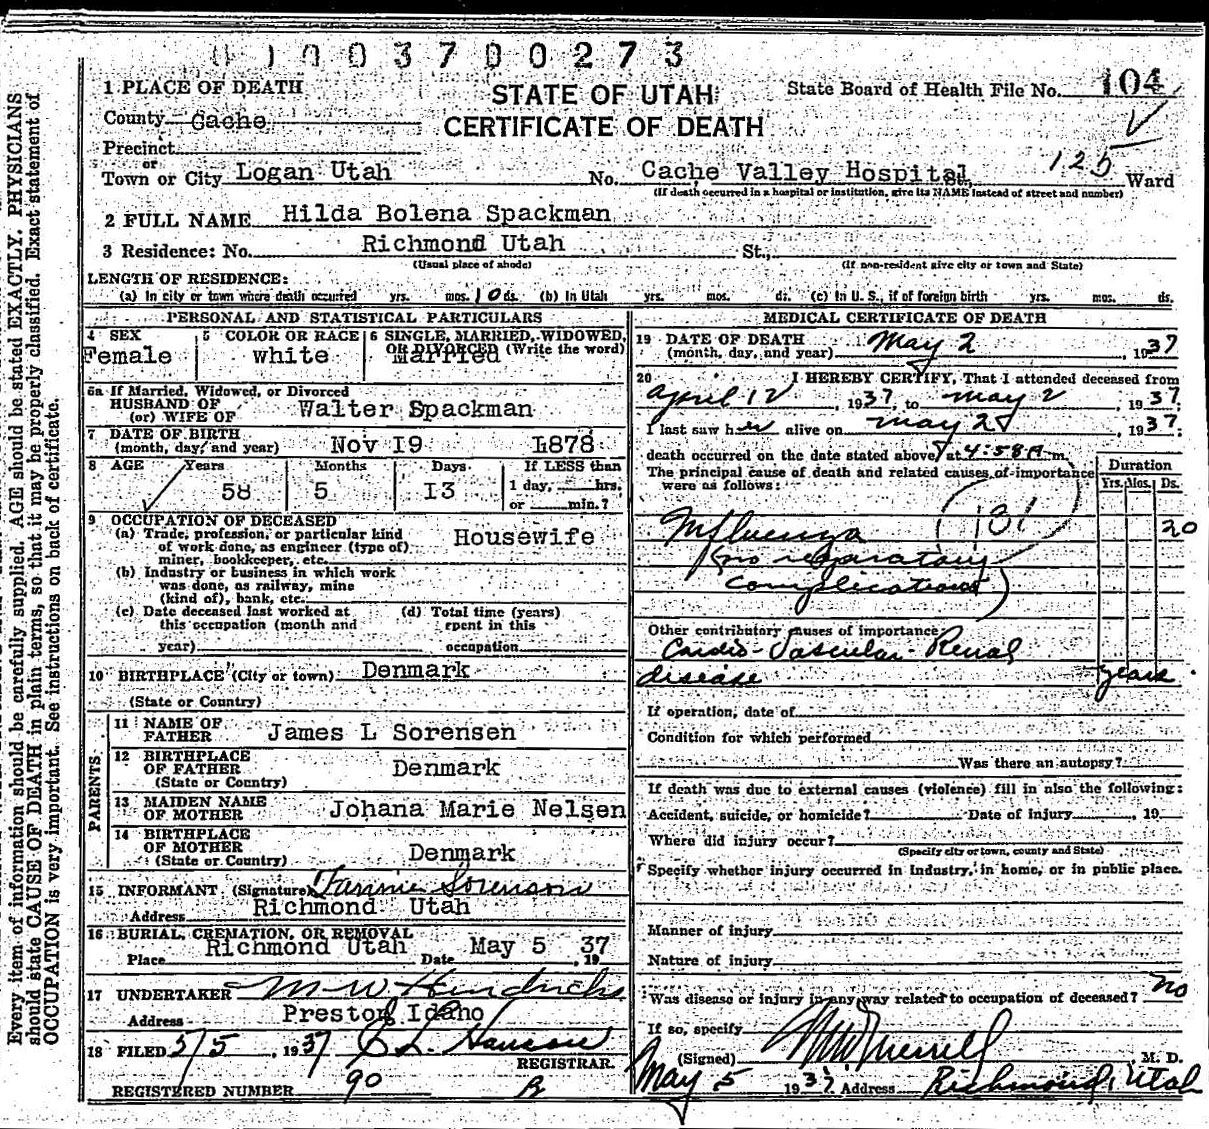 0 1 0 0 3 7 0 0 2 7 3
1 PLACE OF DEATH
STATE OF UTAH
State Board of Health File No. 104
County Cache
CERTIFICATE OF DEATH
Precinct
or
Town or City Logan Utah No. Cache Valley Hospital St., 125 Ward
(If death occurred in a hospital or institution, give its NAME instead of street and number)
2 FULL NAME Hilda Bolena Spackman
3 Residence: No. Richmond Utah St.,
(Usual place of abode) (If non-resident give city or town and State)
LENGTH OF RESIDENCE:
(a) In city or town where death occurred yrs. mos. 10 ds. (b) In Utah yrs. mos. ds. (c) In U. S., if of foreign birth yrs. mos. ds.
PERSONAL AND STATISTICAL PARTICULARS
4 SEX
Female
5 COLOR OR RACE
white
6 SINGLE, MARRIED, WIDOWED,
OR DIVORCED (Write the word)
Married
5a If Married, Widowed, or Divorced
HUSBAND OF
(or) WIFE OF Walter Spackman
7 DATE OF BIRTH
(month, day, and year) Nov 19 1878
8 AGE Years Months Days If LESS than
58 5 13 1 day, hrs.
or min.?
9 OCCUPATION OF DECEASED
(a) Trade, profession, or particular kind
of work done, as engineer (type of)
miner, bookkeeper, etc. Housewife
(b) Industry or business in which work
was done, as railway, mine
(kind of), bank, etc.
(c) Date deceased last worked at
this occupation (month and
year)
(d) Total time (years)
spent in this
occupation
10 BIRTHPLACE (City or town) Denmark
(State or Country)
PARENTS
11 NAME OF
FATHER James L Sorensen
12 BIRTHPLACE
OF FATHER Denmark
(State or Country)
13 MAIDEN NAME
OF MOTHER Johana Marie Nelsen
14 BIRTHPLACE
OF MOTHER Denmark
(State or Country)
15 INFORMANT (Signature) Fannie Sorenson
Address Richmond Utah
16 BURIAL, CREMATION, OR REMOVAL
Place Richmond Utah Date May 5, 1937
17 UNDERTAKER M W Hendricks
Address Preston Idaho
18 FILED 5/5, 1937 C L Hanson
REGISTRAR.
REGISTERED NUMBER 90
MEDICAL CERTIFICATE OF DEATH
19 DATE OF DEATH
(month, day, and year) May 2, 1937
20 I HEREBY CERTIFY, That I attended deceased from
April 12, 1937, to May 2, 1937.
I last saw her alive on May 2, 1937;
death occurred on the date stated above, at 4:58 A m.
The principal cause of death and related causes of importance
were as follows:
Duration
Yrs. Mos. Ds.
Influenza 20
(no respiratory
complications)
Other contributory causes of importance
Cardio-Vascular-Renal
disease years
If operation, date of
Condition for which performed
Was there an autopsy?
If death was due to external causes (violence) fill in also the following:
Accident, suicide, or homicide? Date of injury , 19
Where did injury occur?
(Specify city or town, county and State)
Specify whether injury occurred in Industry, in home, or in public place.
Manner of injury
Nature of injury
Was disease or injury in any way related to occupation of deceased? no
If so, specify
(Signed) Merrell, M. D.
May 5 1937 Address Richmond, Utah
Every item of information should be carefully supplied. AGE should be stated EXACTLY. PHYSICIANS
should state CAUSE OF DEATH in plain terms, so that it may be properly classified. Exact statement of
OCCUPATION is very important. See instructions on back of certificate.